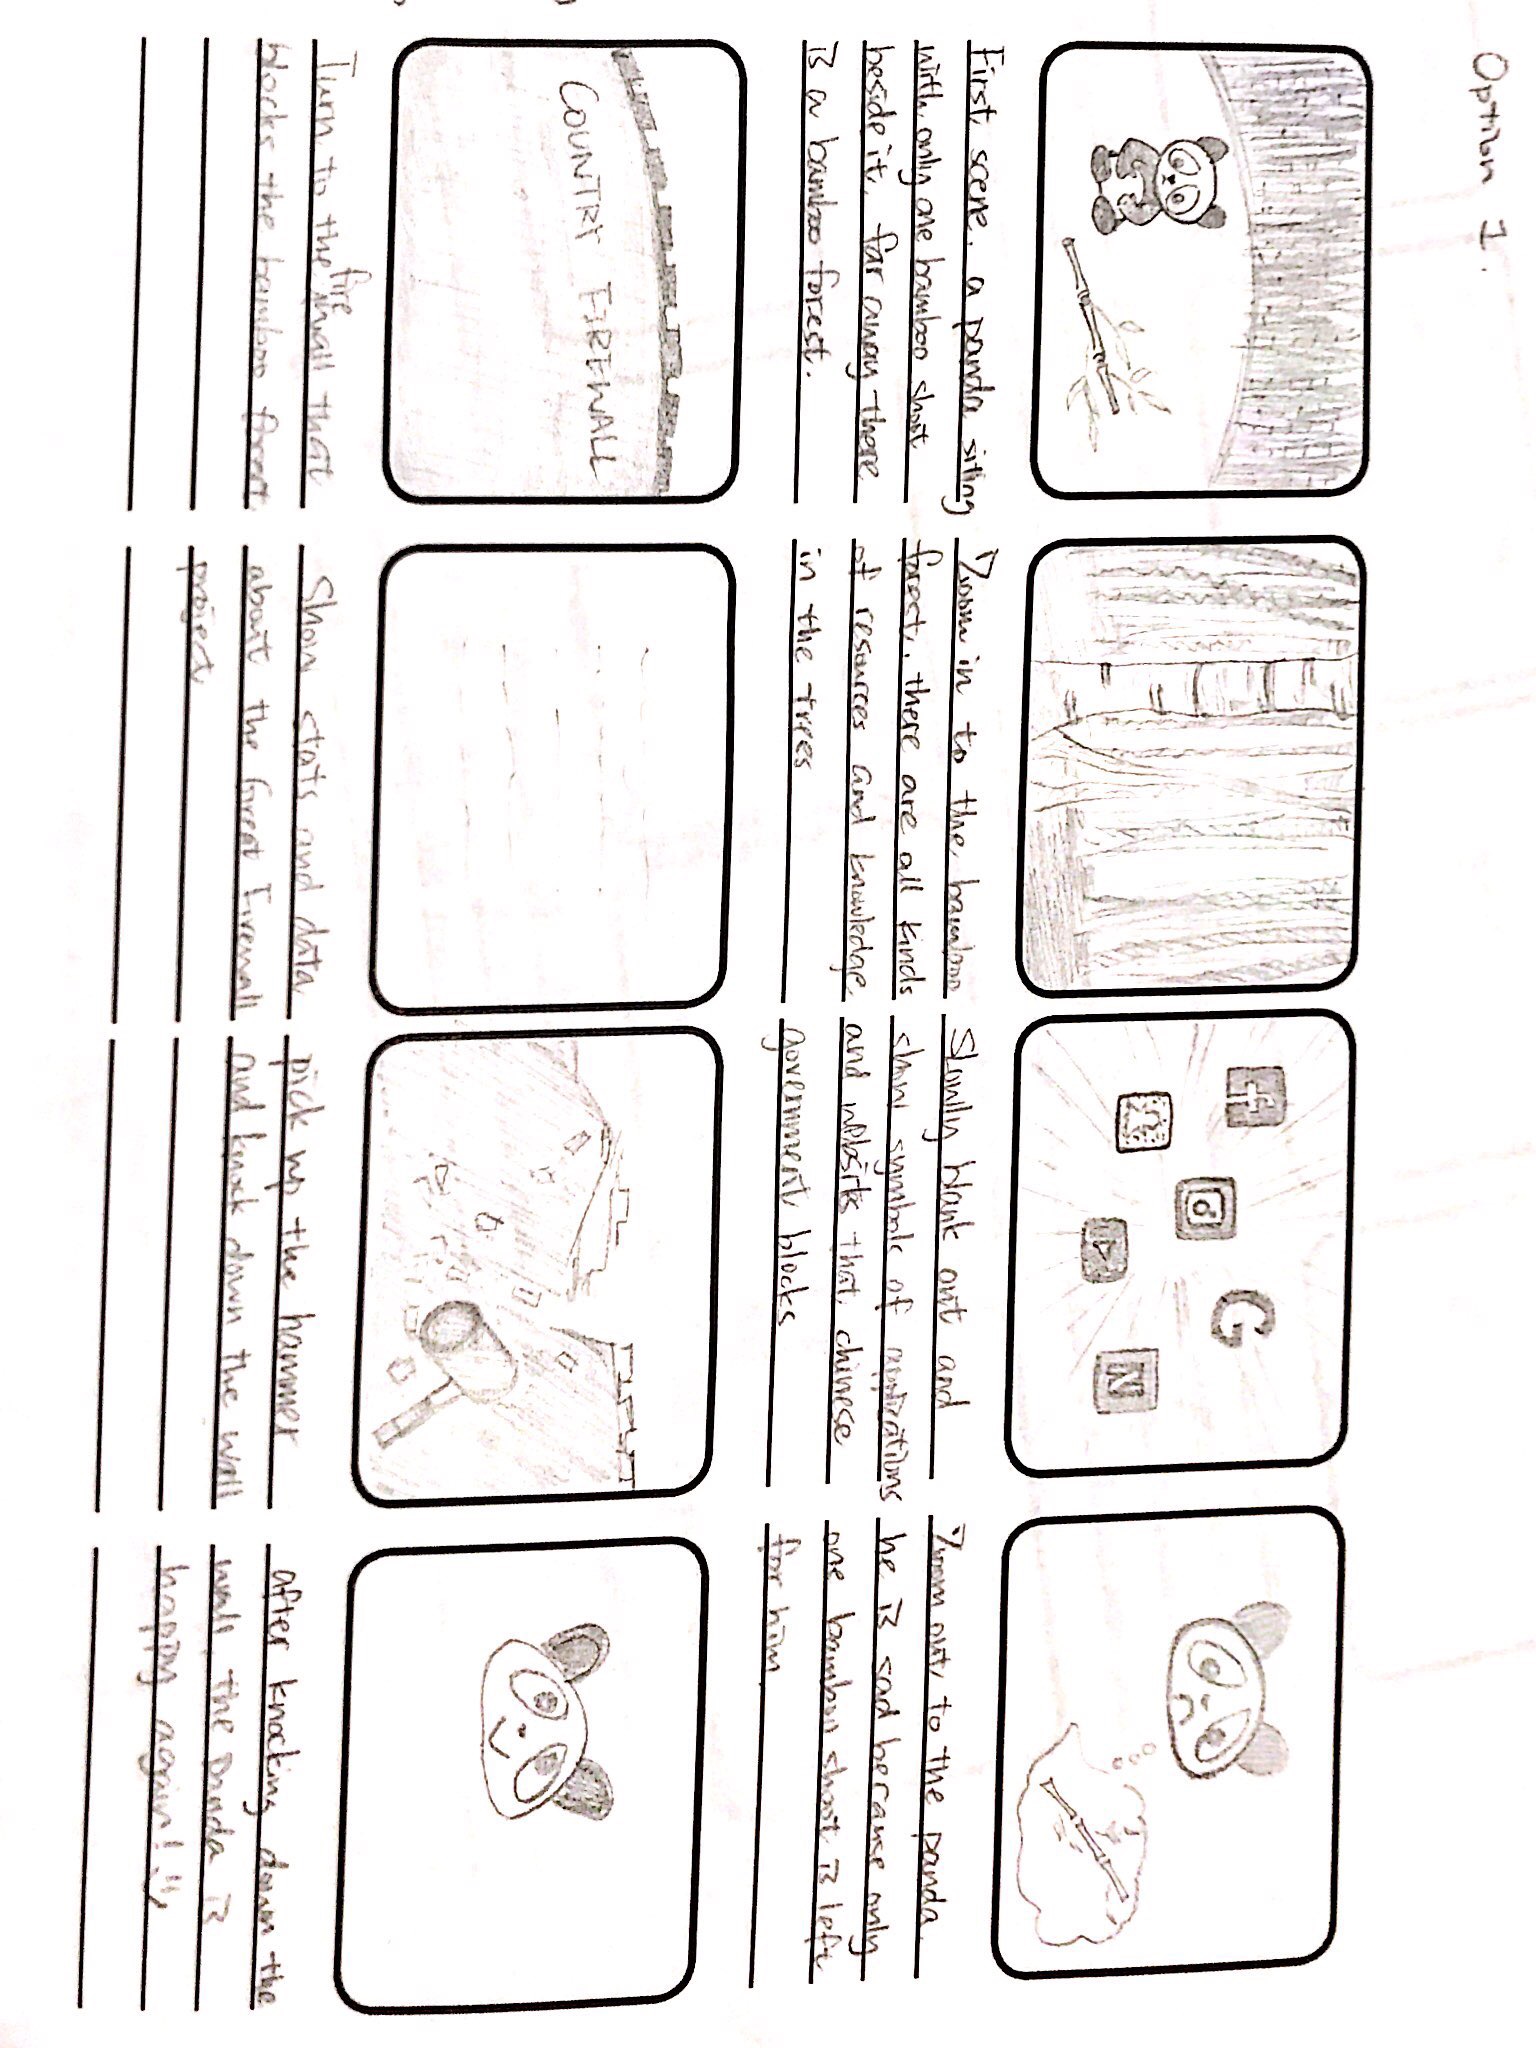 Option 1.
First scene, a panda sitting
with only one bamboo shoot
beside it, far away there
is a bamboo forest.
Zoom in to the bamboo
forest, there are all kinds
of resources and knowledge
in the trees
f
G
N
Slowly blank out and
show symbols of applications
and websites that chinese
government blocks
Zoom out, to the panda.
he is sad because only
one bamboo shoot is left
for him.
COUNTRY FIREWALL
Turn to the fire wall that
blocks the bamboo forest
Show stats and data
about the Great Firewall
project
pick up the hammer
and knock down the wall
after knocking down the
wall, the panda is
happy again!!!